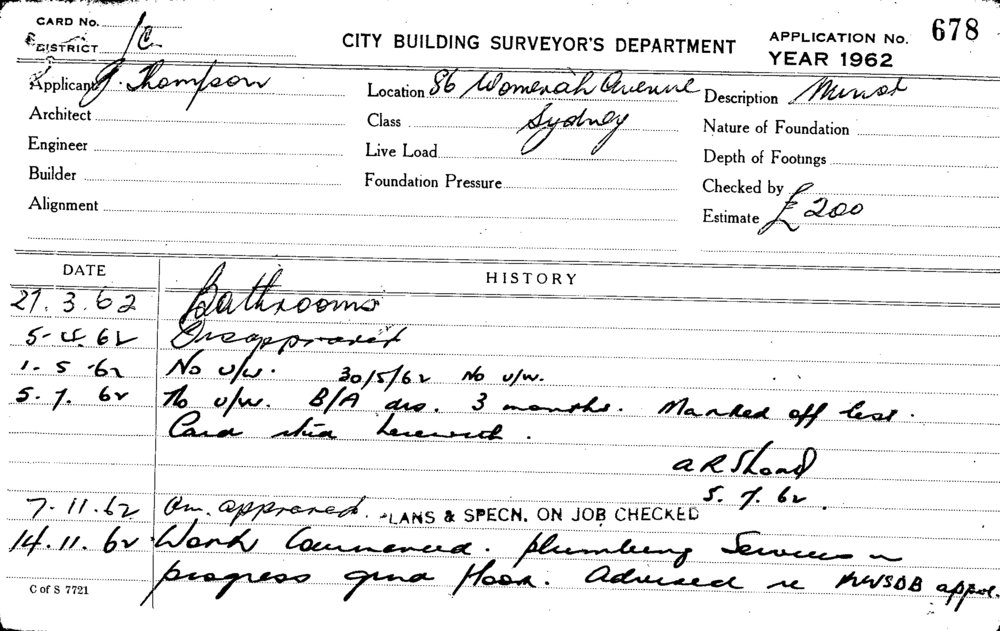 CARD No.
DISTRICT 1C
CITY BUILDING SURVEYOR'S DEPARTMENT
APPLICATION No. 678
YEAR 1962
Applicant G. Thompson
Location 86 Womerah Avenue
Sydney
Description
Architect
Class
Nature of Foundation
Engineer
Live Load
Depth of Footings
Builder
Foundation Pressure
Checked by
Alignment
Estimate £200
DATE
HISTORY
27.3.62 Bathrooms
5-4.62 Disapproved
1.5.62 No u/w. 30/5/62 No u/w.
5.7.62 No u/w. B/A dis. 3 months. Marked off list.
Card herewith.
A R Shand
5.7.62
7.11.62 approved. PLANS & SPECN. ON JOB CHECKED
14.11.62 Work Commenced. plumbing Services in
progress grnd floor. Advised re MWSDB appvl.
C of S 7721